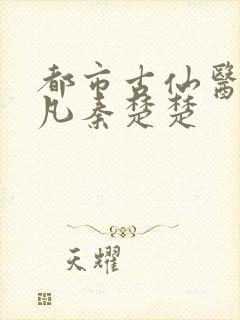 都市古仙醫
凡秦楚楚
天耀